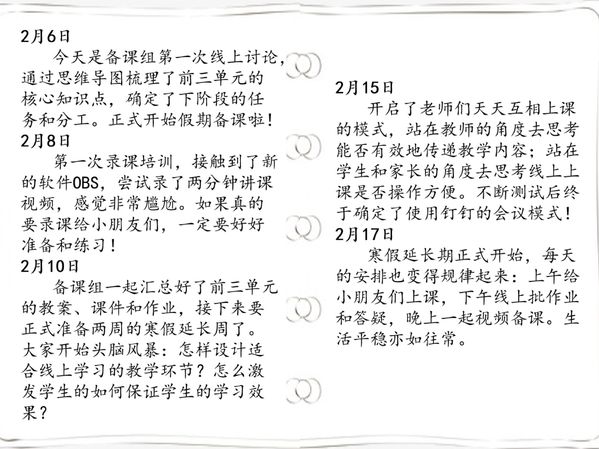 2月6日
今天是备课组第一次线上讨论,
通过思维导图梳理了前三单元的
核心知识点，确定了下阶段的任
务和分工。正式开始假期备课啦！
2月8日
第一次录课培训，接触到了新
的软件OBS，尝试录了两分钟讲课
视频，感觉非常尴尬。如果真的
要录课给小朋友们，一定要好好
准备和练习！
2月10日
备课组一起汇总好了前三单元
的教案、课件和作业，接下来要
正式准备两周的寒假延长周了。
大家开始头脑风暴：怎样设计适
合线上学习的教学环节？怎么激
发学生的如何保证学生的学习效
果？
2月15日
开启了老师们天天互相上课
的模式，站在教师的角度去思考
能否有效地传递教学内容；站在
学生和家长的角度去思考线上上
课是否操作方便。不断测试后终
于确定了使用钉钉的会议模式！
2月17日
寒假延长期正式开始，每天
的安排也变得规律起来：上午给
小朋友们上课，下午线上批作业
和答疑，晚上一起视频备课。生
活平稳亦如往常。